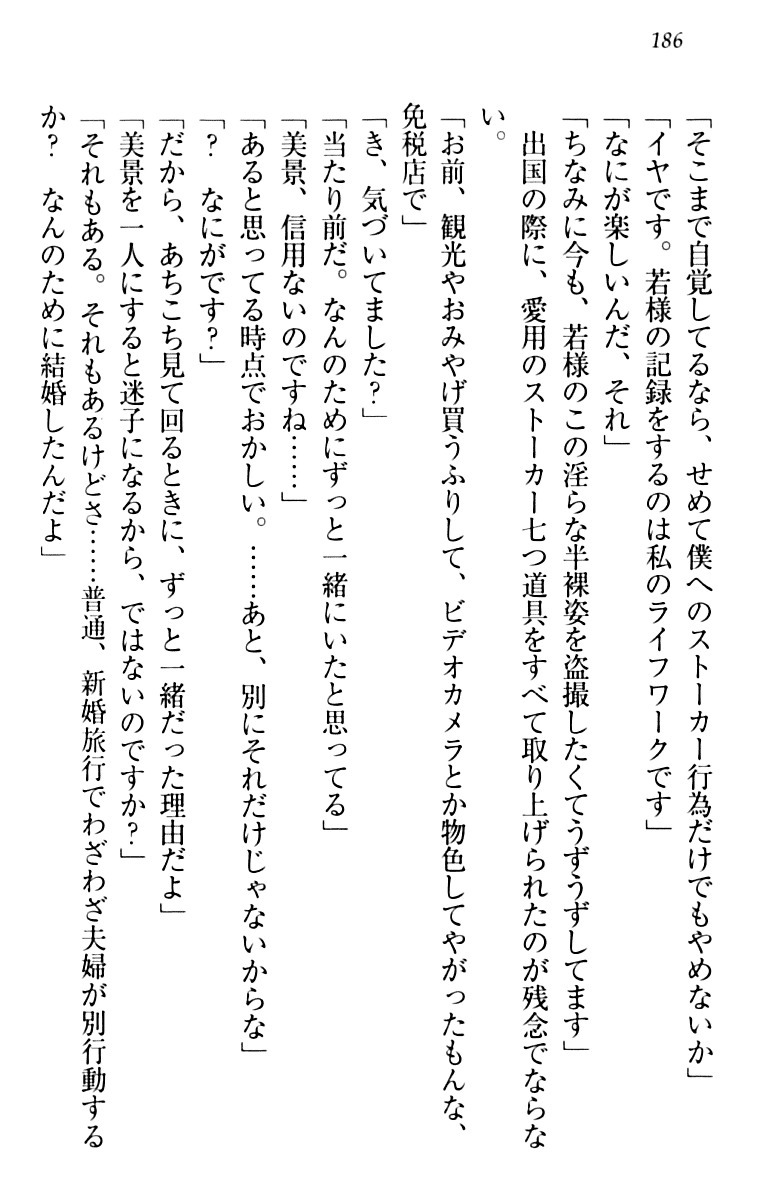 186
「そこまで自覚してるなら、せめて僕へのストーカー行為だけでもやめないか」
「イヤです。若様の記録をするのは私のライフワークです」
「なにが楽しいんだ、それ」
「ちなみに今も、若様のこの淫らな半裸姿を盗撮したくてうずうずしてます」
　出国の際に、愛用のストーカー七つ道具をすべて取り上げられたのが残念でならな
い。
「お前、観光やおみやげ買うふりして、ビデオカメラとか物色してやがったもんな、
免税店で」
「き、気づいてました？」
「当たり前だ。なんのためにずっと一緒にいたと思ってる」
「美景、信用ないのですね……」
「あると思ってる時点でおかしい。……あと、別にそれだけじゃないからな」
「？　なにがです？」
「だから、あちこち見て回るときに、ずっと一緒だった理由だよ」
「美景を一人にすると迷子になるから、ではないのですか？」
「それもある。それもあるけどさ……普通、新婚旅行でわざわざ夫婦が別行動する
か？　なんのために結婚したんだよ」